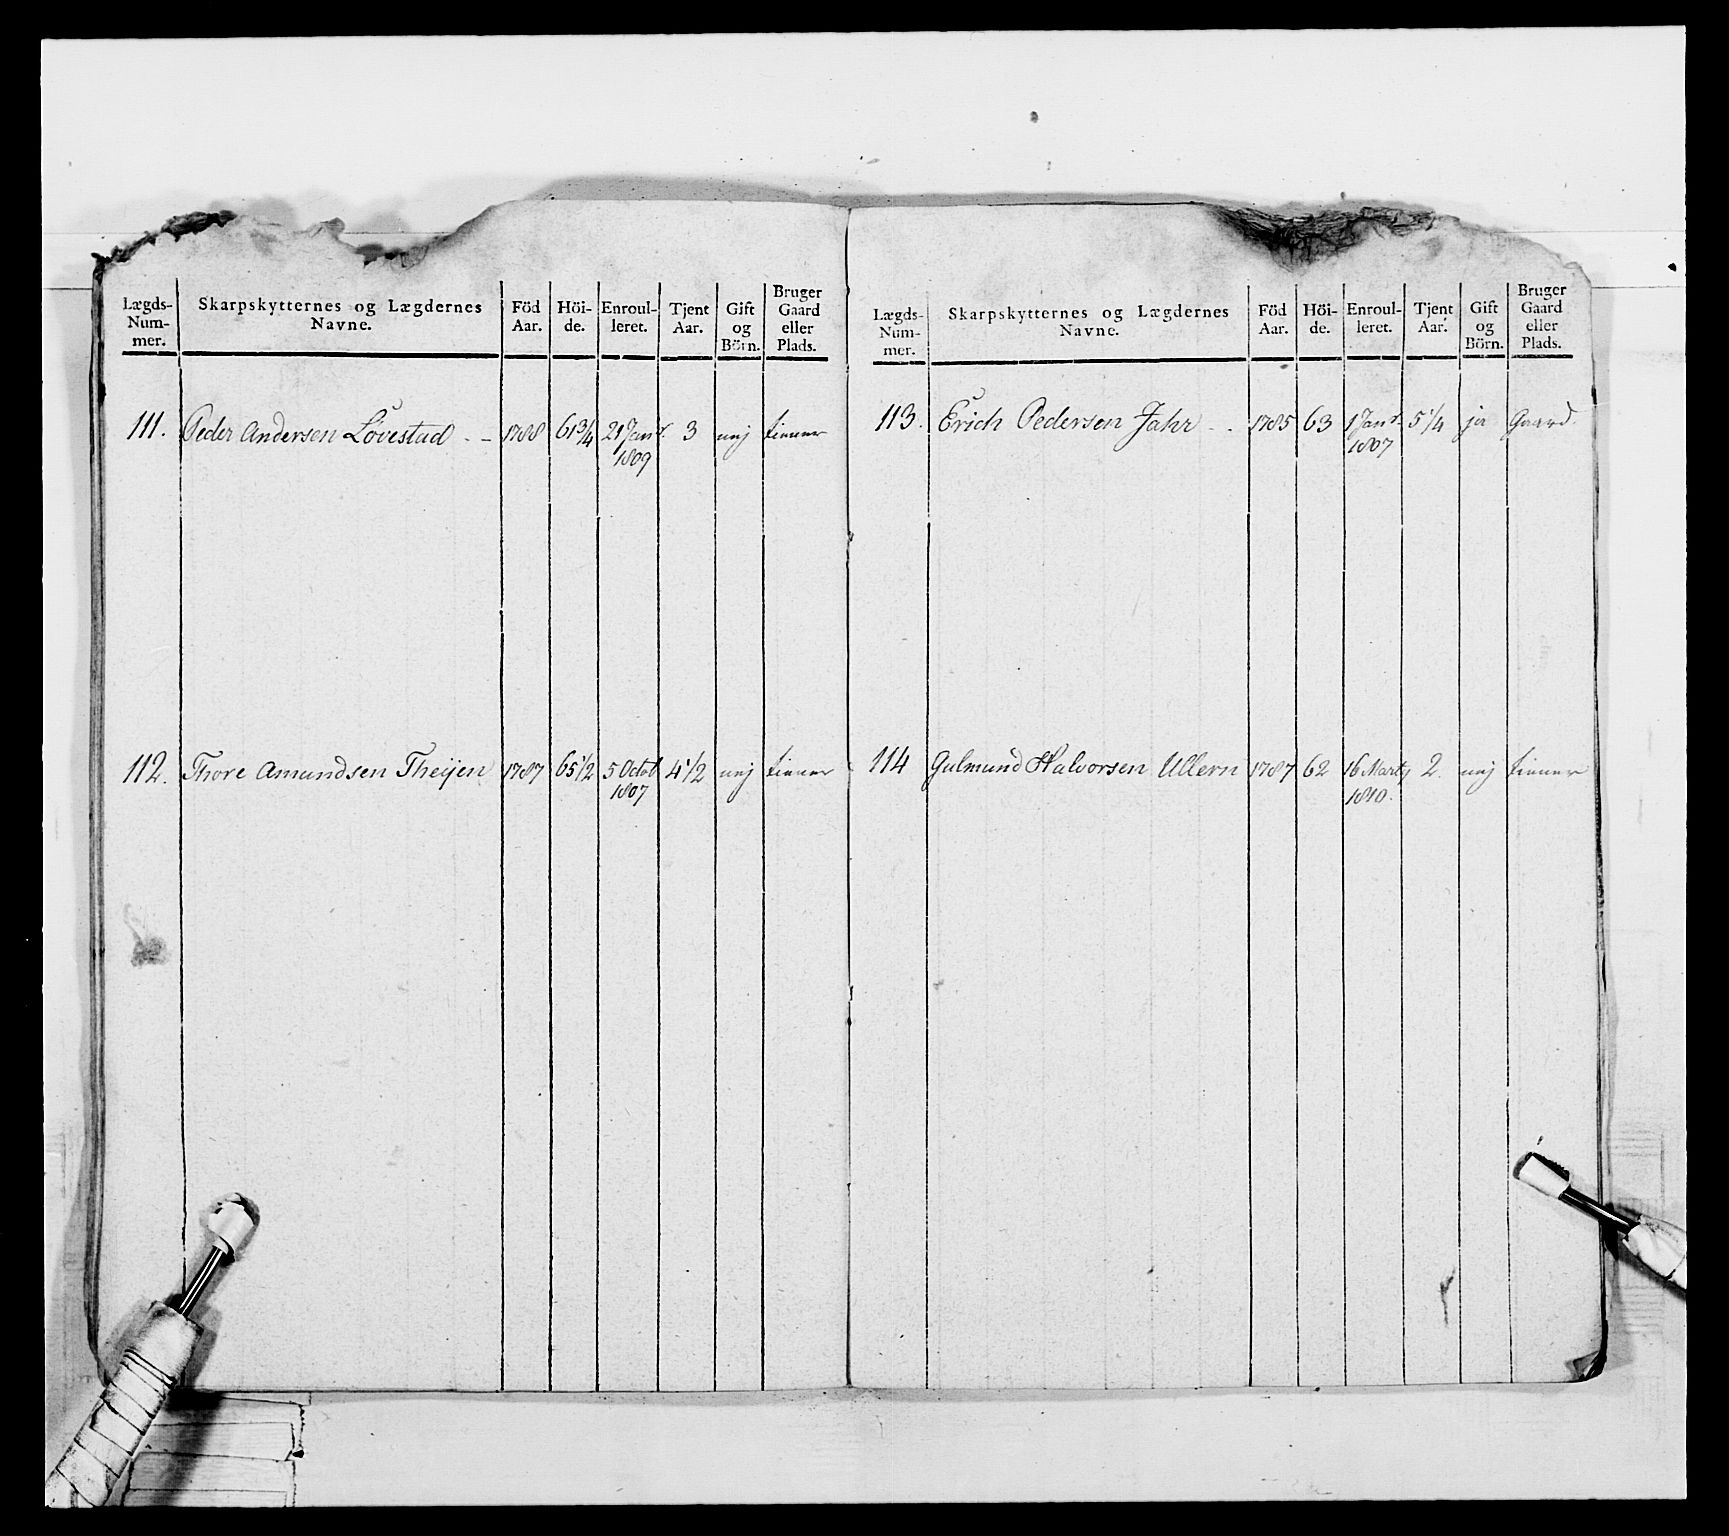 Lægds-Num-mer. Skarpskytternes og Lægdernes Navne. Föd Aar. Höi-de. Enroul-leret. Tjent Aar. Gift og Börn. Bruger Gaard eller Plads.
111. Peder Andersen Løvestad - - 1788 61 3/4 21 Janr. 3 nej tiener
1809
112. Thore Amundsen Theijen 1787 65 1/2 5 Octob 4 1/2 nej tiener
1807
Lægds-Num-mer. Skarpskytternes og Lægdernes Navne. Föd Aar. Höi-de. Enroul-leret. Tjent Aar. Gift og Börn. Bruger Gaard eller Plads.
113. Erich Pedersen Jahr - - 1785 63 1 Janr. 5 1/4 ja Gaard.
1807
114 Gulmund Halvorsen Ullern 1787 62 16 Marty 2. nej tiener
1810.